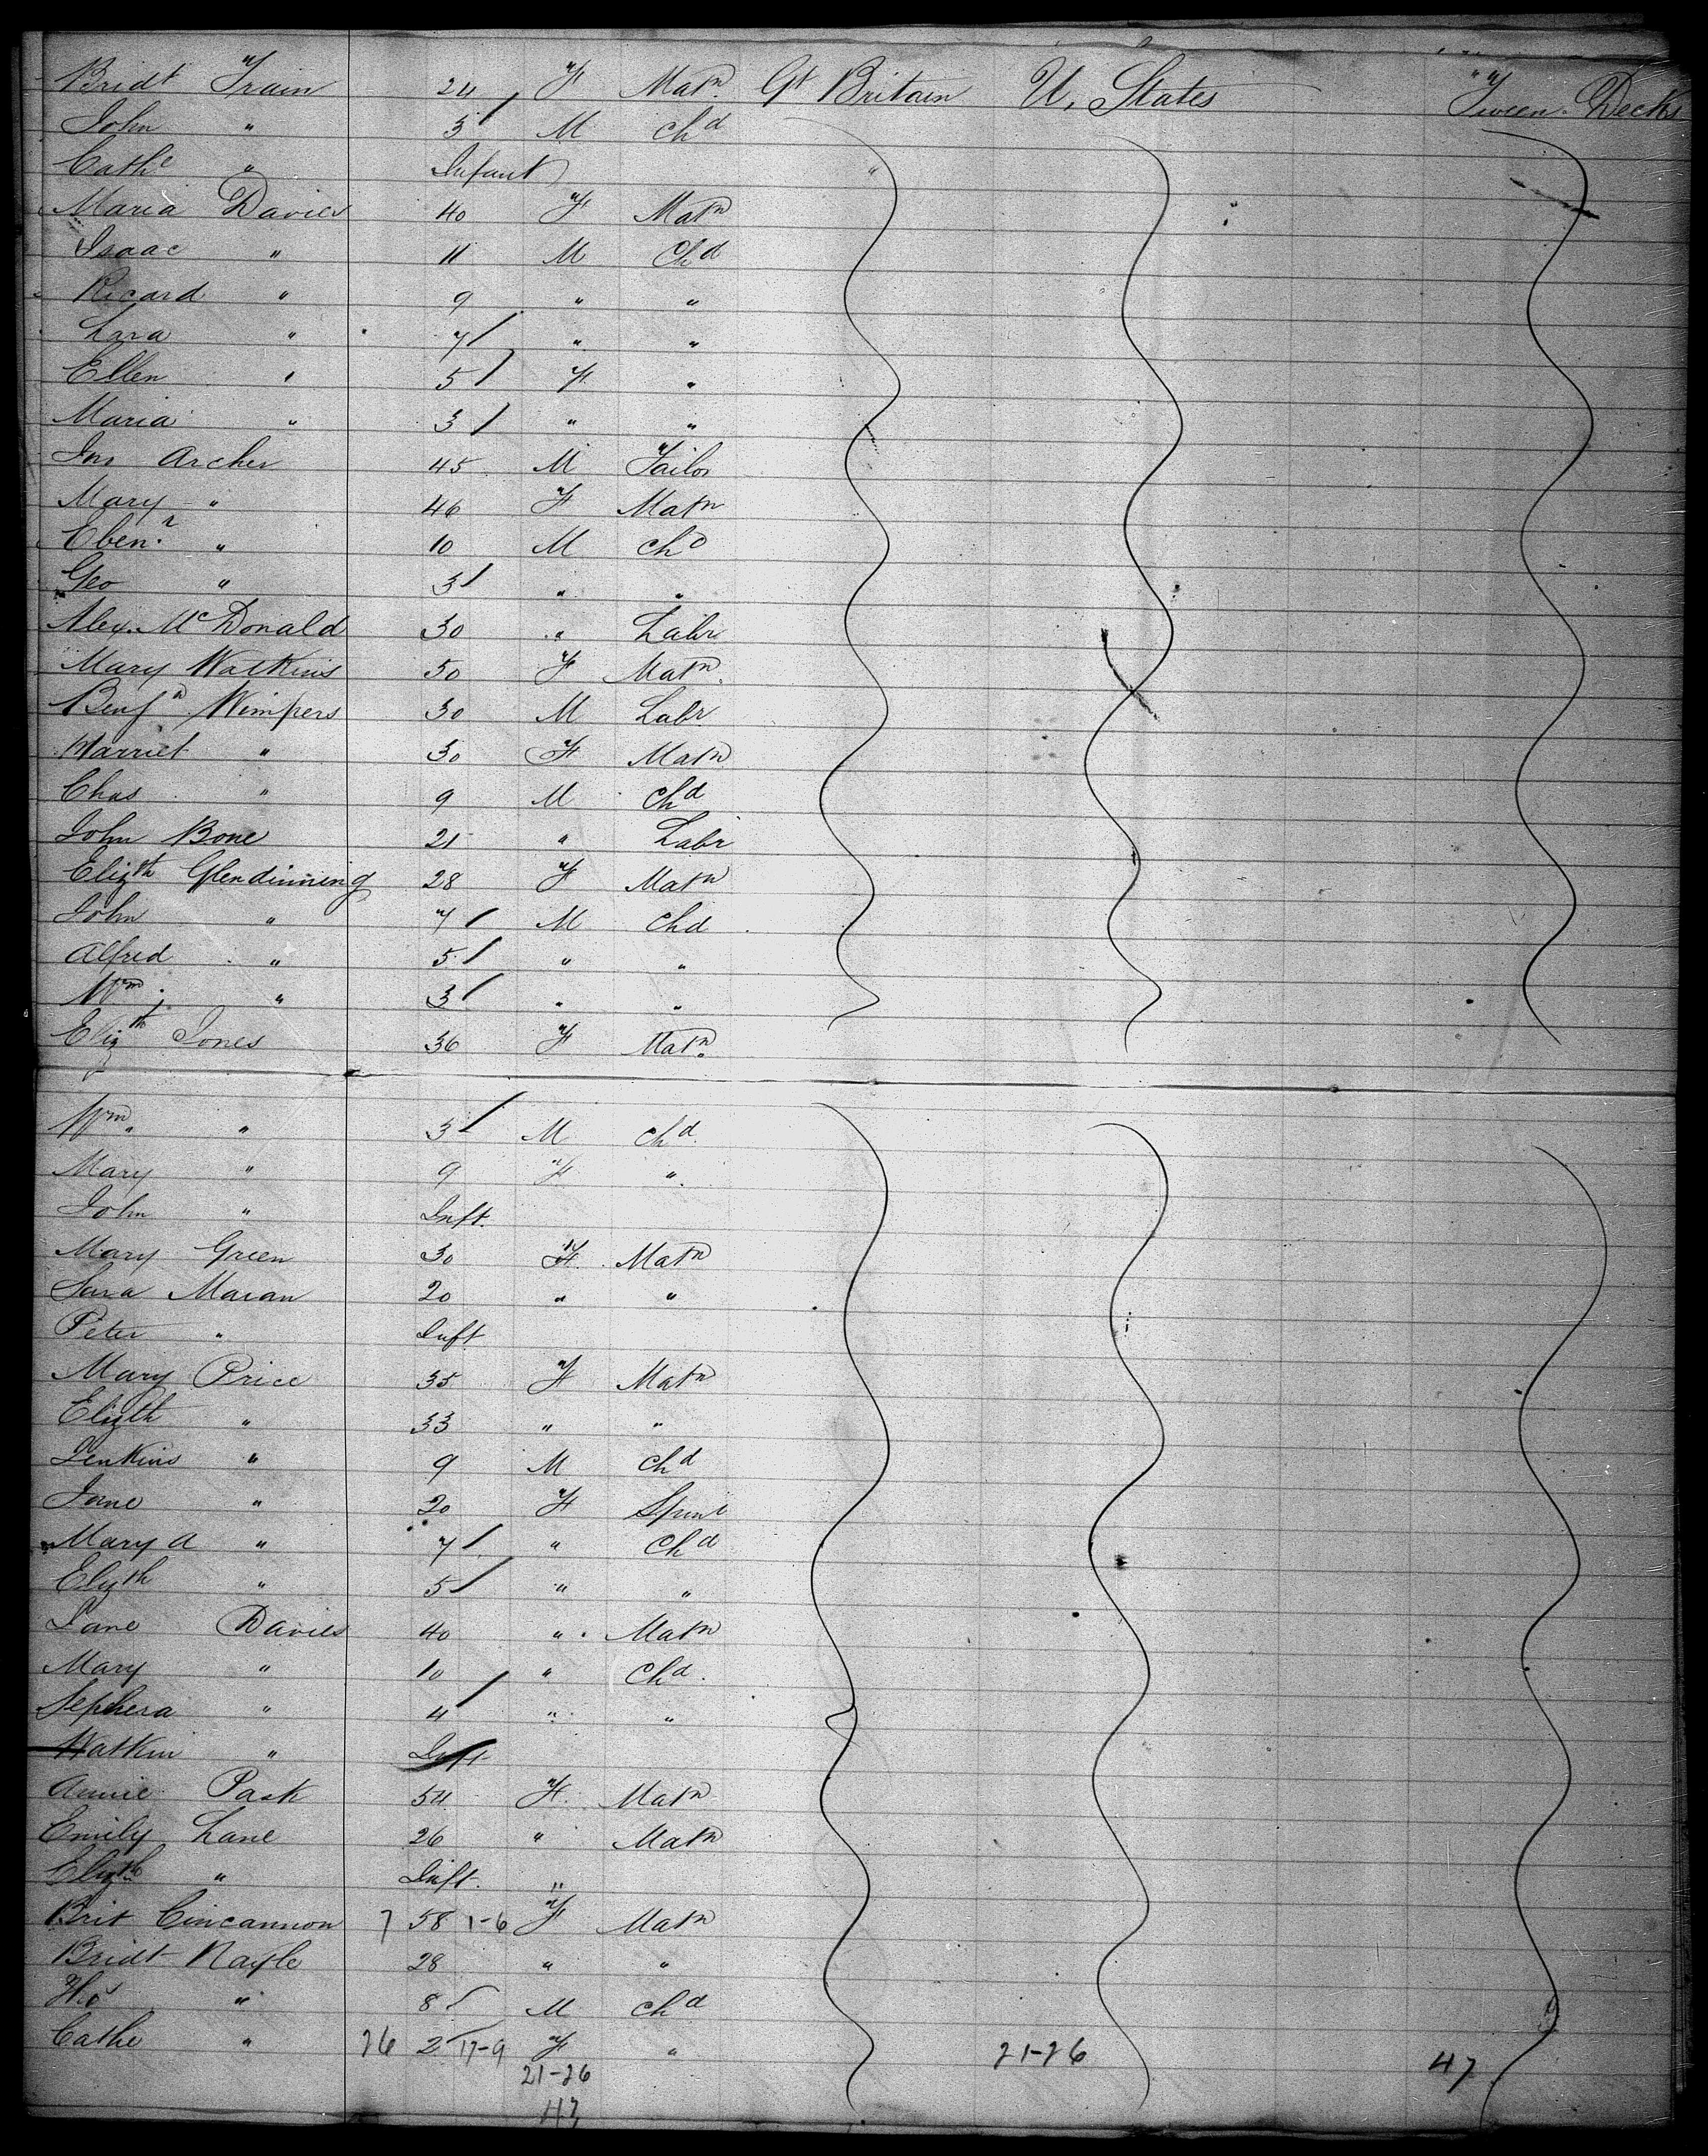 Bridt Train 24 F Matn. Gt Britain U. States Tween Decks
John " 3 M Chd
Cathe " Infant "
Maria Davies 40 F Matn
Isaac " 11 M Chd
Ricard " 9 " "
Sara " 7 " "
Ellen " 5 F "
Maria " 3 " "
Jno Archer 45 M Tailor
Mary " 46 F Matn
Ebenr " 10 M Chd
Geo " 3 " "
Alex. McDonald 30 " Labr
Mary Watkins 50 F Matn.
Benjn Wimpers 30 M Labr
Harriet " 30 F Matn
Chas " 9 M Chd
John Bone 21 " Labr
Elizth Glendinning 28 F Matn
John " 7 M Chd
Alfred " 5 " "
Wm " 3 " "
Elizth Jones 36 F Matn.
Wm " 3 M Chd
Mary " 9 F "
John " Inft.
Mary Green 30 F. Matn
Sara Maran 20 " "
Peter " Inft
Mary Price 35 F Matn
Elizth " 33 " "
Jenkins " 9 M Chd
Jane " 20 F Spinr
Mary A " 7 " Chd
Elizth " 5 " "
Jane Davies 40 " Matn
Mary " 10 " Chd.
Sephera " 4 " "
Watkin " Inft
Annie Pask 54 F. Matn
Emily Lane 26 " Matn
Elizth " Inft. "
Brit Cincannon 7 58 1-6 F Matn
Bridt Nayle 28 " "
Thos " 8 M Chd
Cathe " 26 2 17-9 F " 21-26 47
21-26
47